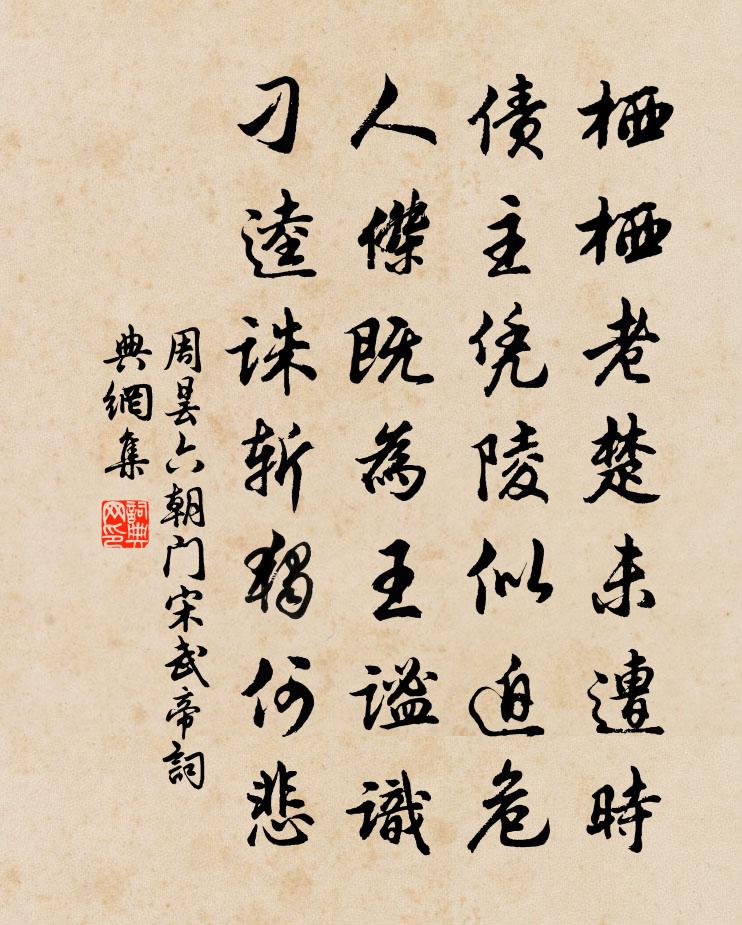 栖栖老楚未遭時
债主凭陵似迫危
人傑既為王謐識
刁逵誅斬獨何悲
周昙六朝门宋武帝詞
典網集
詞典网印